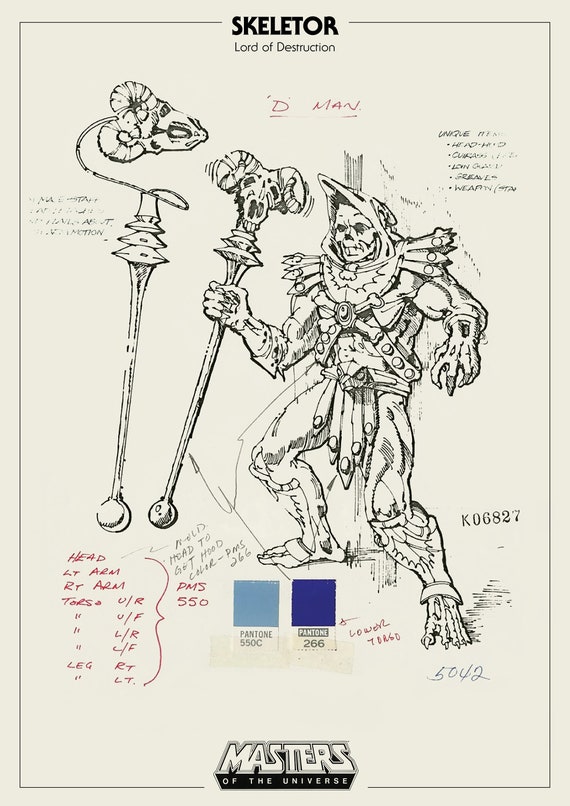 SKELETOR
Lord of Destruction
"D" MAN.
UNIQUE
• HEAD-HOOD
• CUIRASS
• LOIN GUARD
• GREAVES
• WEAPON (STA
STAFF
ABOUT,
MOTION
K06827
MOLD
HEAD TO
GET HOOD
COLOR-PMS
266
HEAD
LT ARM
RT ARM
TORSO U/R
" U/F
" L/R
" L/F
LEG RT
" LT.
PMS
550
PANTONE
550C
PANTONE
266
LOWER
TORSO
5042
MASTERS
OF THE UNIVERSE